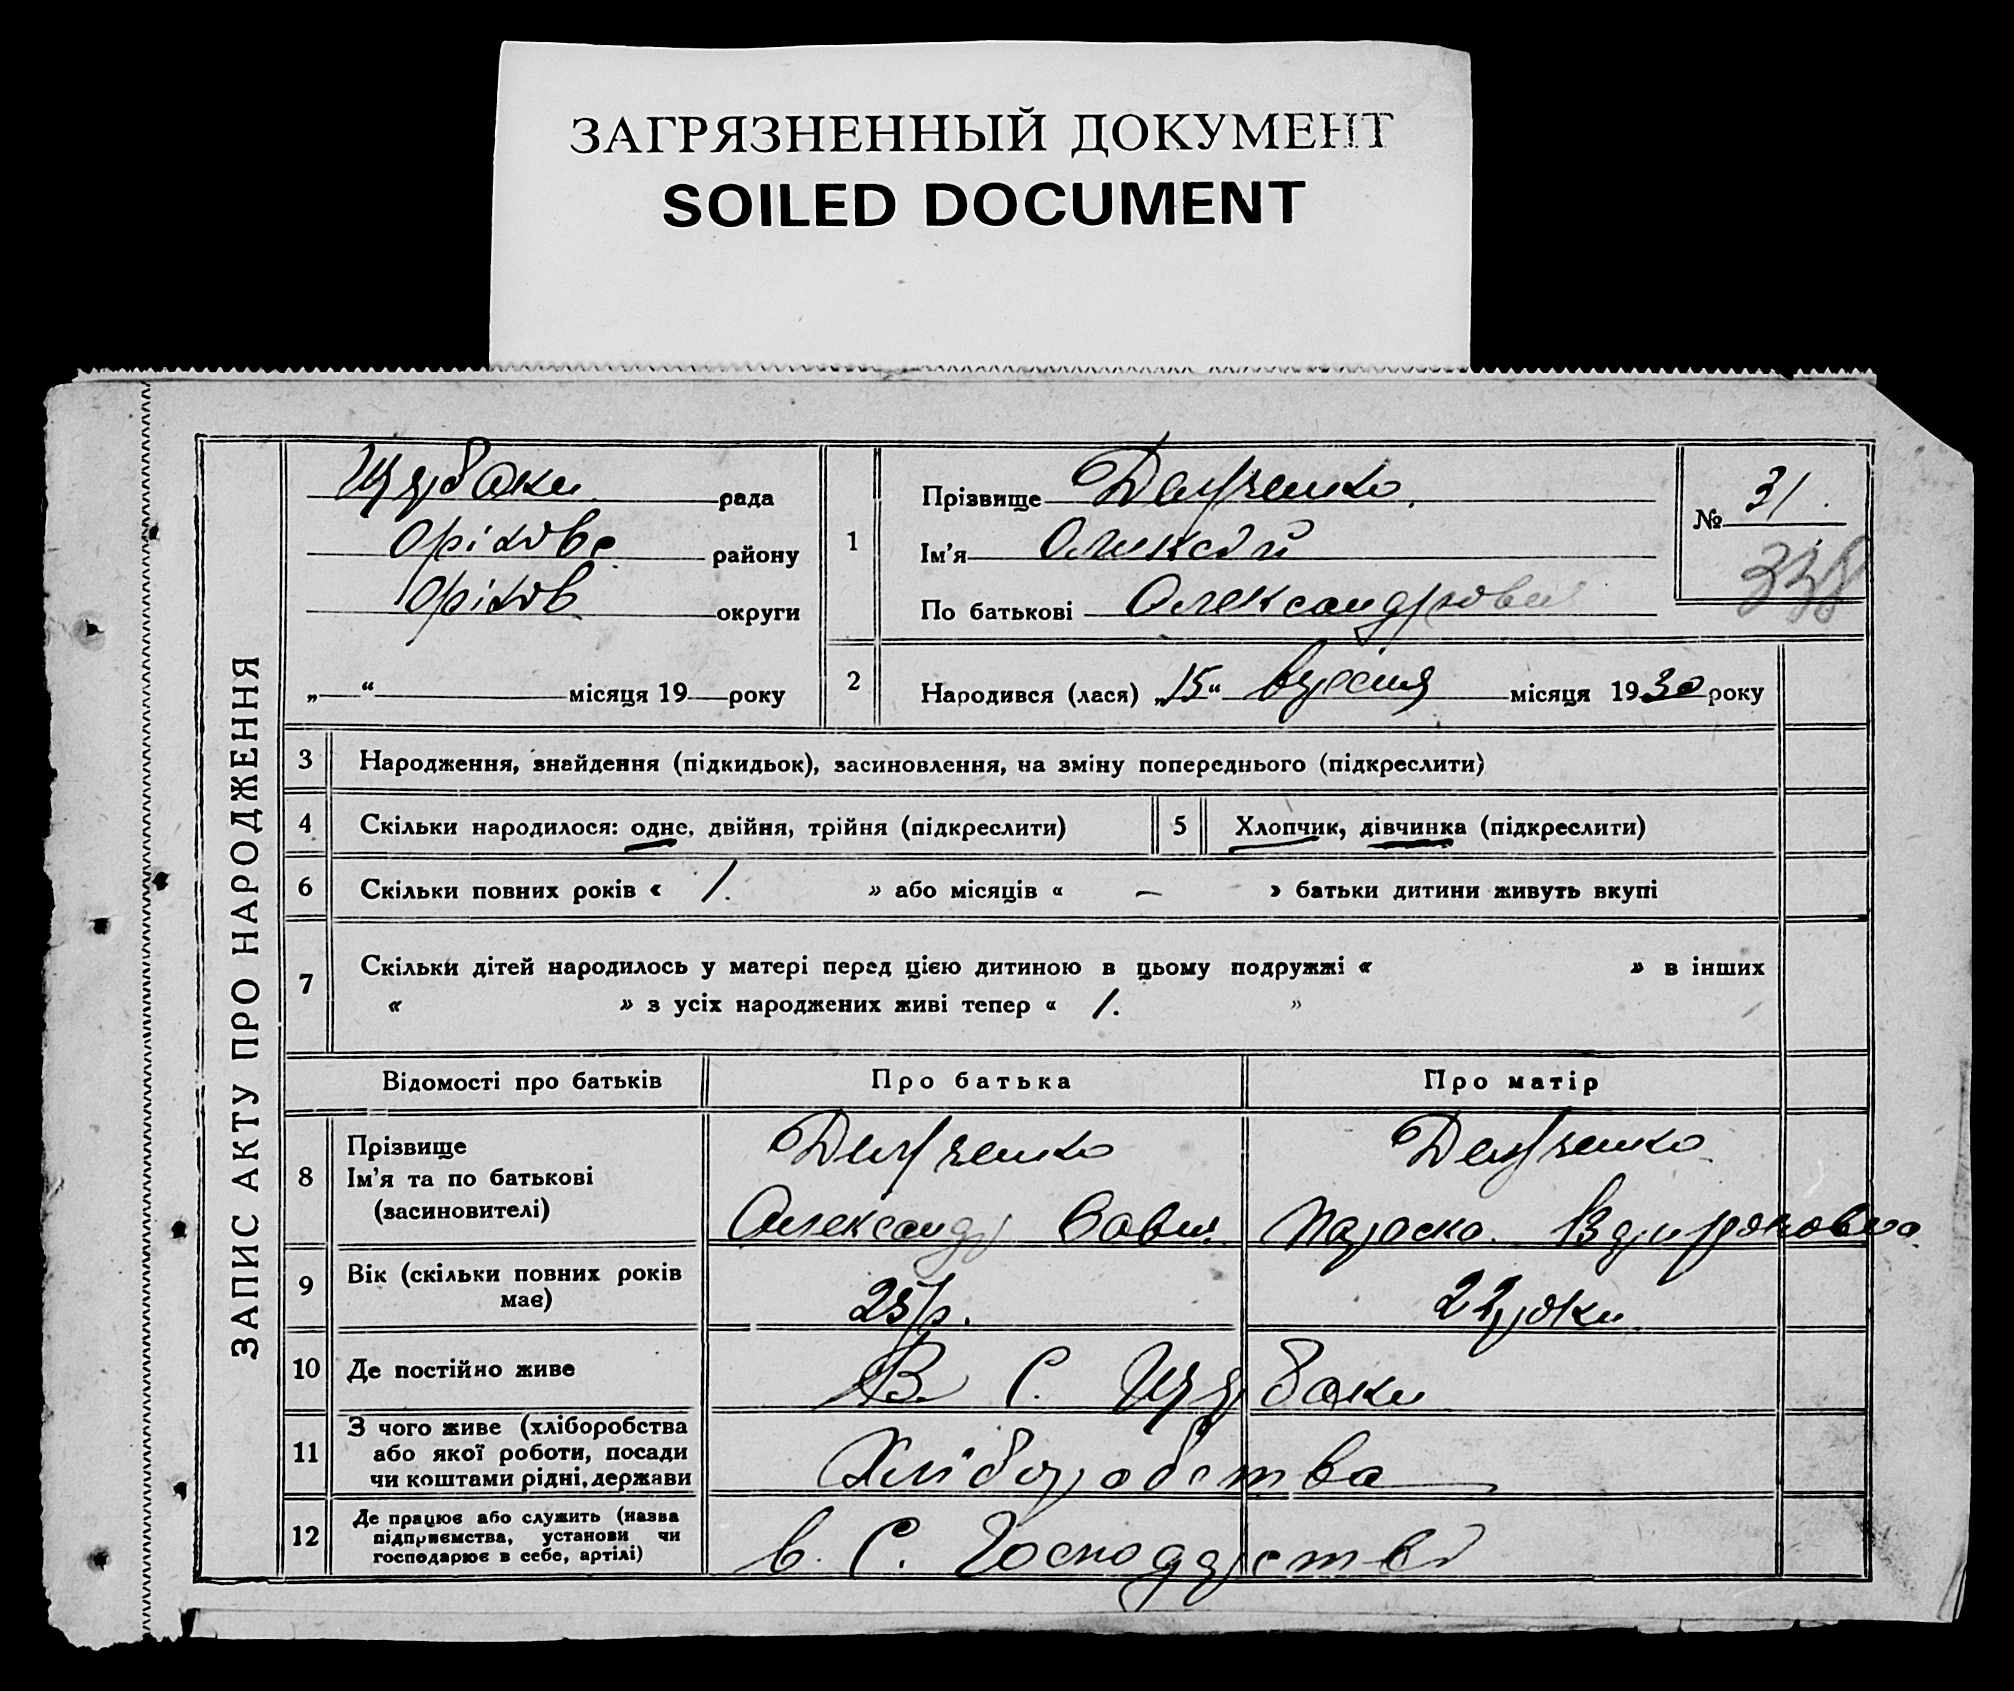 ЗАГРЯЗНЕННЫЙ ДОКУМЕНТ
SOILED DOCUMENT
ЗАПИС АКТУ ПРО НАРОДЖЕННЯ
рада
району
округи
„ “ місяця 19 року
1
Прізвище
Ім’я Оликсій
По батькові Олександрови
№ 31.
338
2
Народився (лася) „15“ вересня місяця 1930 року
3 Народження, знайдення (підкидьок), засиновлення, на зміну попереднього (підкреслити)
4 Скільки народилося: одне, двійня, трійня (підкреслити)
5 Хлопчик, дівчинка (підкреслити)
6 Скільки повних років « 1. » або місяців « — » батьки дитини живуть вкупі
7 Скільки дітей народилось у матері перед цією дитиною в цьому подружжі « » в інших
« » з усіх народжених живі тепер « 1. »
Відомості про батьків Про батька Про матір
8 Прізвище
Ім’я та по батькові
(засиновителі)
Олександр Савич Параска
9 Вік (скільки повних років
має)
25 р. 22 роки
10 Де постійно живе В С. Щербаки
11 З чого живе (хліборобства
або якої роботи, посади
чи коштами рідні, держави
Хліборобства
12 Де працює або служить (назва
підприємства, установи чи
господарює в себе, артілі)
в С. Господарстві